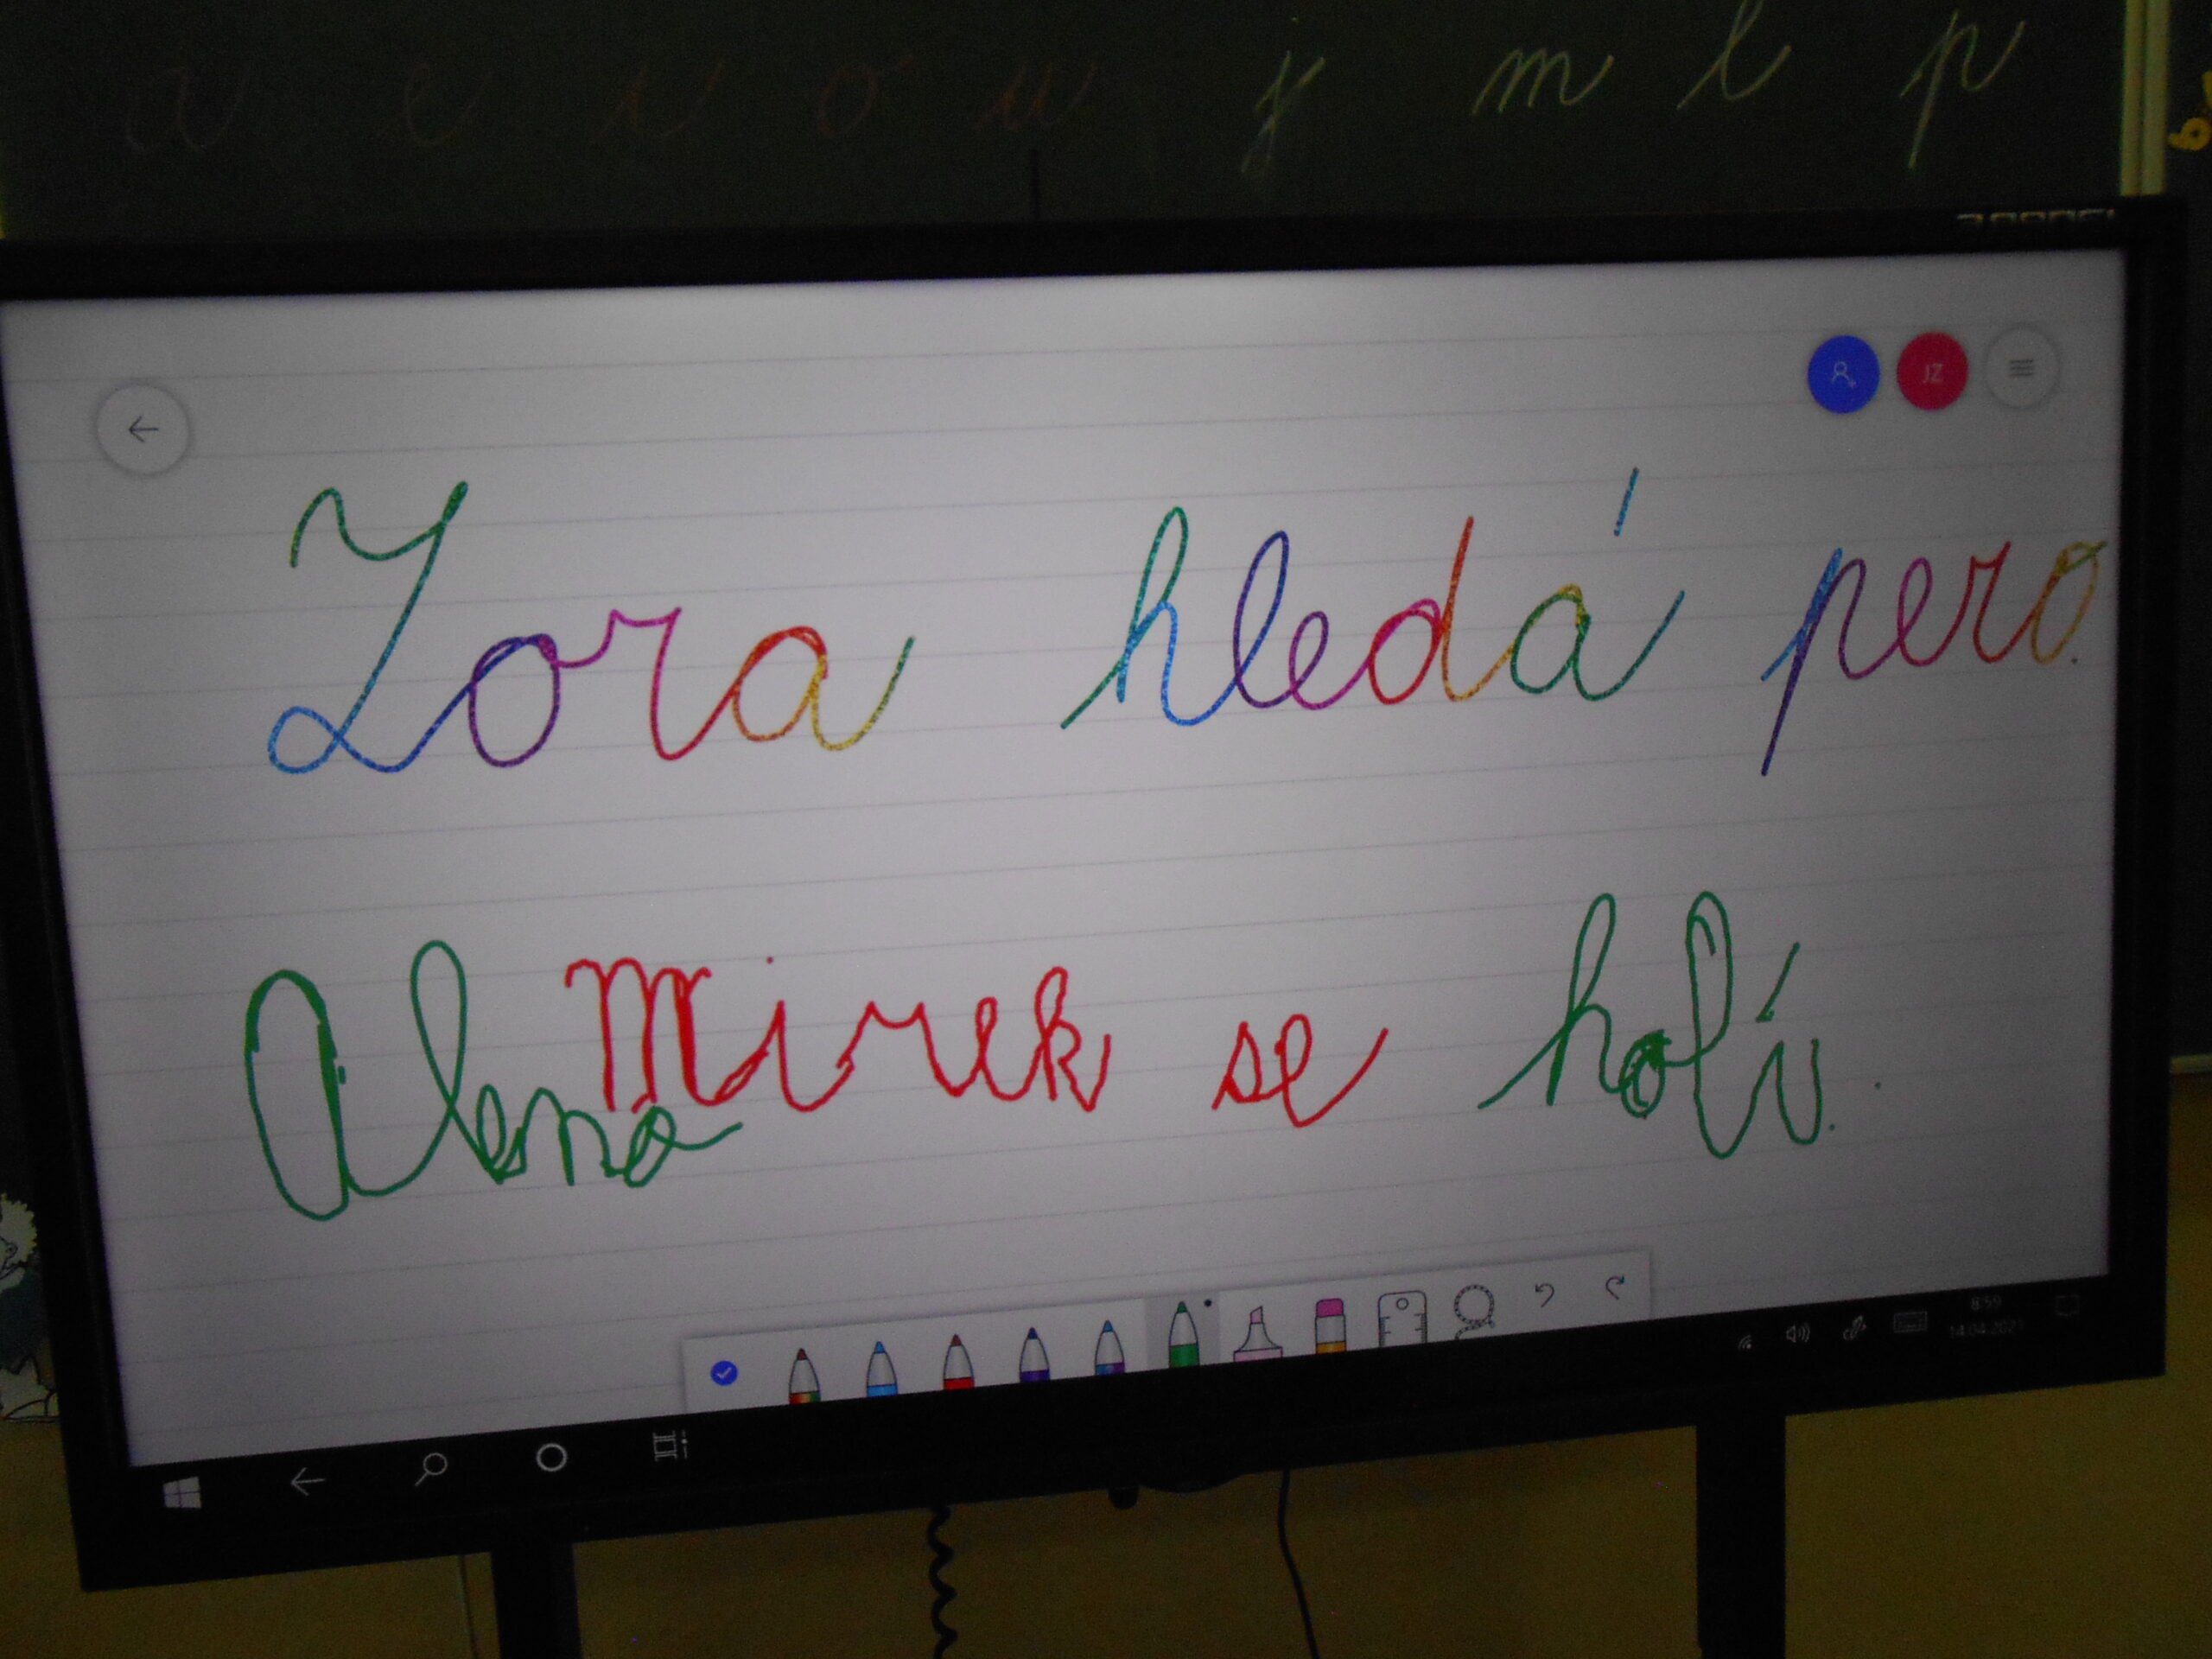 a e i o u y m l p
JZ
Zora hledá pero.
Alena Mirek se holí.
8:59
14.04.2021